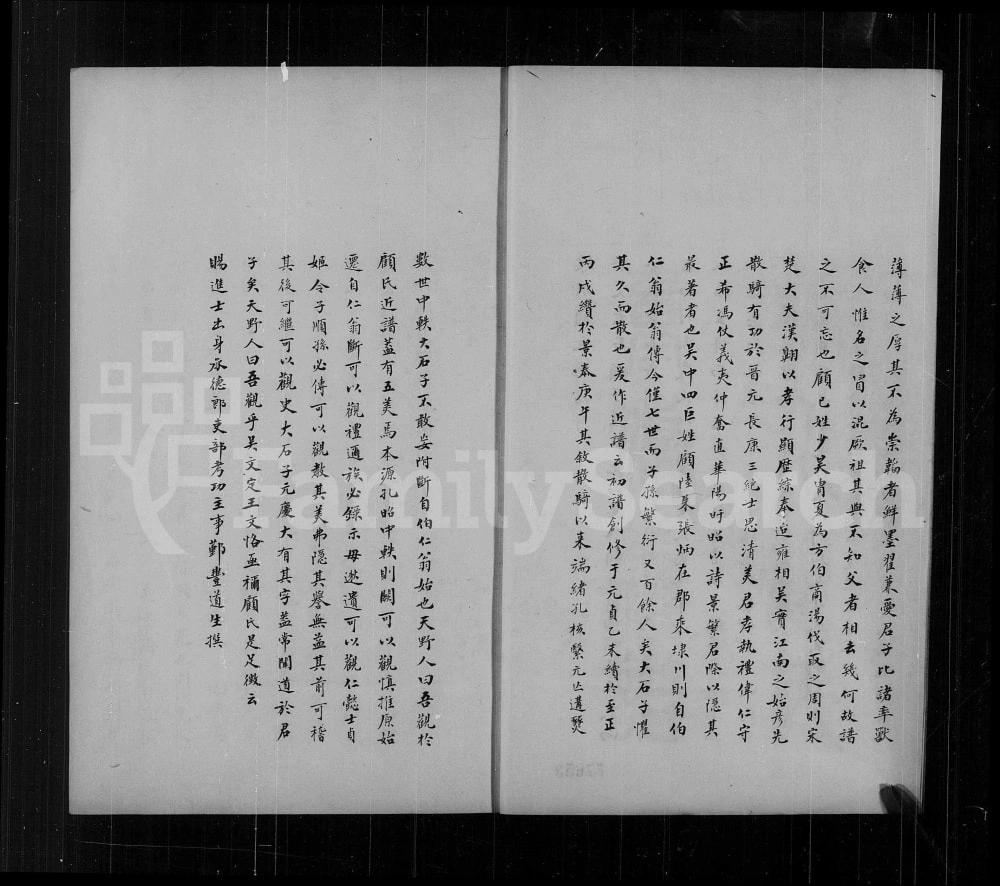 薄薄之厚其不為崇韜者鮮墨翟兼愛君子比諸率獸
食人惟名之冒以混厥祖其與不知父者相去幾何故譜
之不可忘也顧已姓少昊胄夏為方伯商湯伐取之周則宋
楚大夫漢翺以孝行顯歷綜奉近雍相吳實江南之始彥先
散騎有功於晉元長康三絕士思清美君孝執禮偉仁守
正希馮仗義夷仲奮直華陽盱眙以詩景繁君際以隱其
最著者也吳中四巨姓顧陸朱張炳在郡乘埭川則自伯
仁翁始翁傳今僅七世而子孫繁衍又百餘人矣大石子懼
其久而散也爰作近譜云初譜創修于元貞乙未續於至正
丙戌纘於景泰庚午其敘散騎以來端緒孔核繄元亡遺燹
數世中軼大石子不敢妄附斷自伯仁翁始也天野人曰吾觀於
顧氏近譜蓋有五美焉本源孔昭中軼則闕可以觀慎推原始
遷自仁翁斷可以觀禮通族必錄示毋遨遺可以觀仁懿士貞
姬令子順孫必傳可以觀教其美弗隱其譽無益其前可稽
其後可繼可以觀史大石子元慶大有其字蓋常聞道於君
子矣天野人曰吾觀乎吳文定王文恪亟稱顧氏是足徵云
賜進士出身承德郎吏部考功主事鄞豐道生撰
FamilySearch